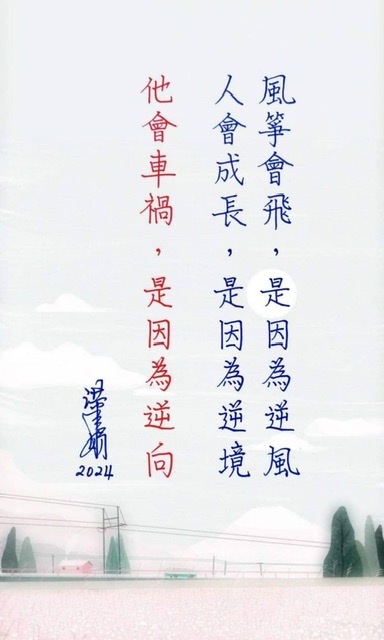 風箏會飛，是因為逆風
人會成長，是因為逆境
他會車禍，是因為逆向
2024